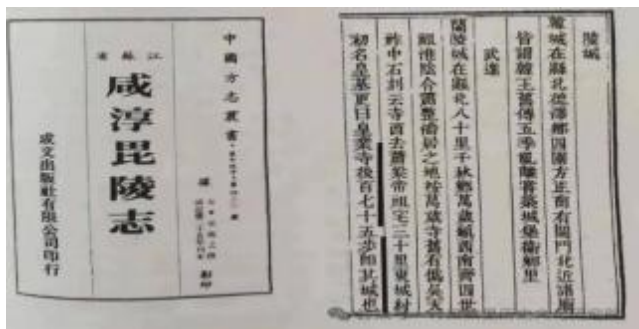 中國方志叢書
江蘇省
咸淳毘陵志
成文出版社有限公司印行
影印
城
城在縣北德澤鄉四圍方正南有閘門北近諸廟
皆謂韓王舊傳五季亂離嘗築城堡衛鄉里
武進
蘭陵城在縣北八十里千秋鄉萬歲鎮西南齊四世
祖淮陰令蕭整僑居之地按萬歲寺舊有偽吳天
祚中石刻云寺西去蕭梁帝祖宅三十里東城村
初名皇基更曰皇業寺後百七十五步即其城也